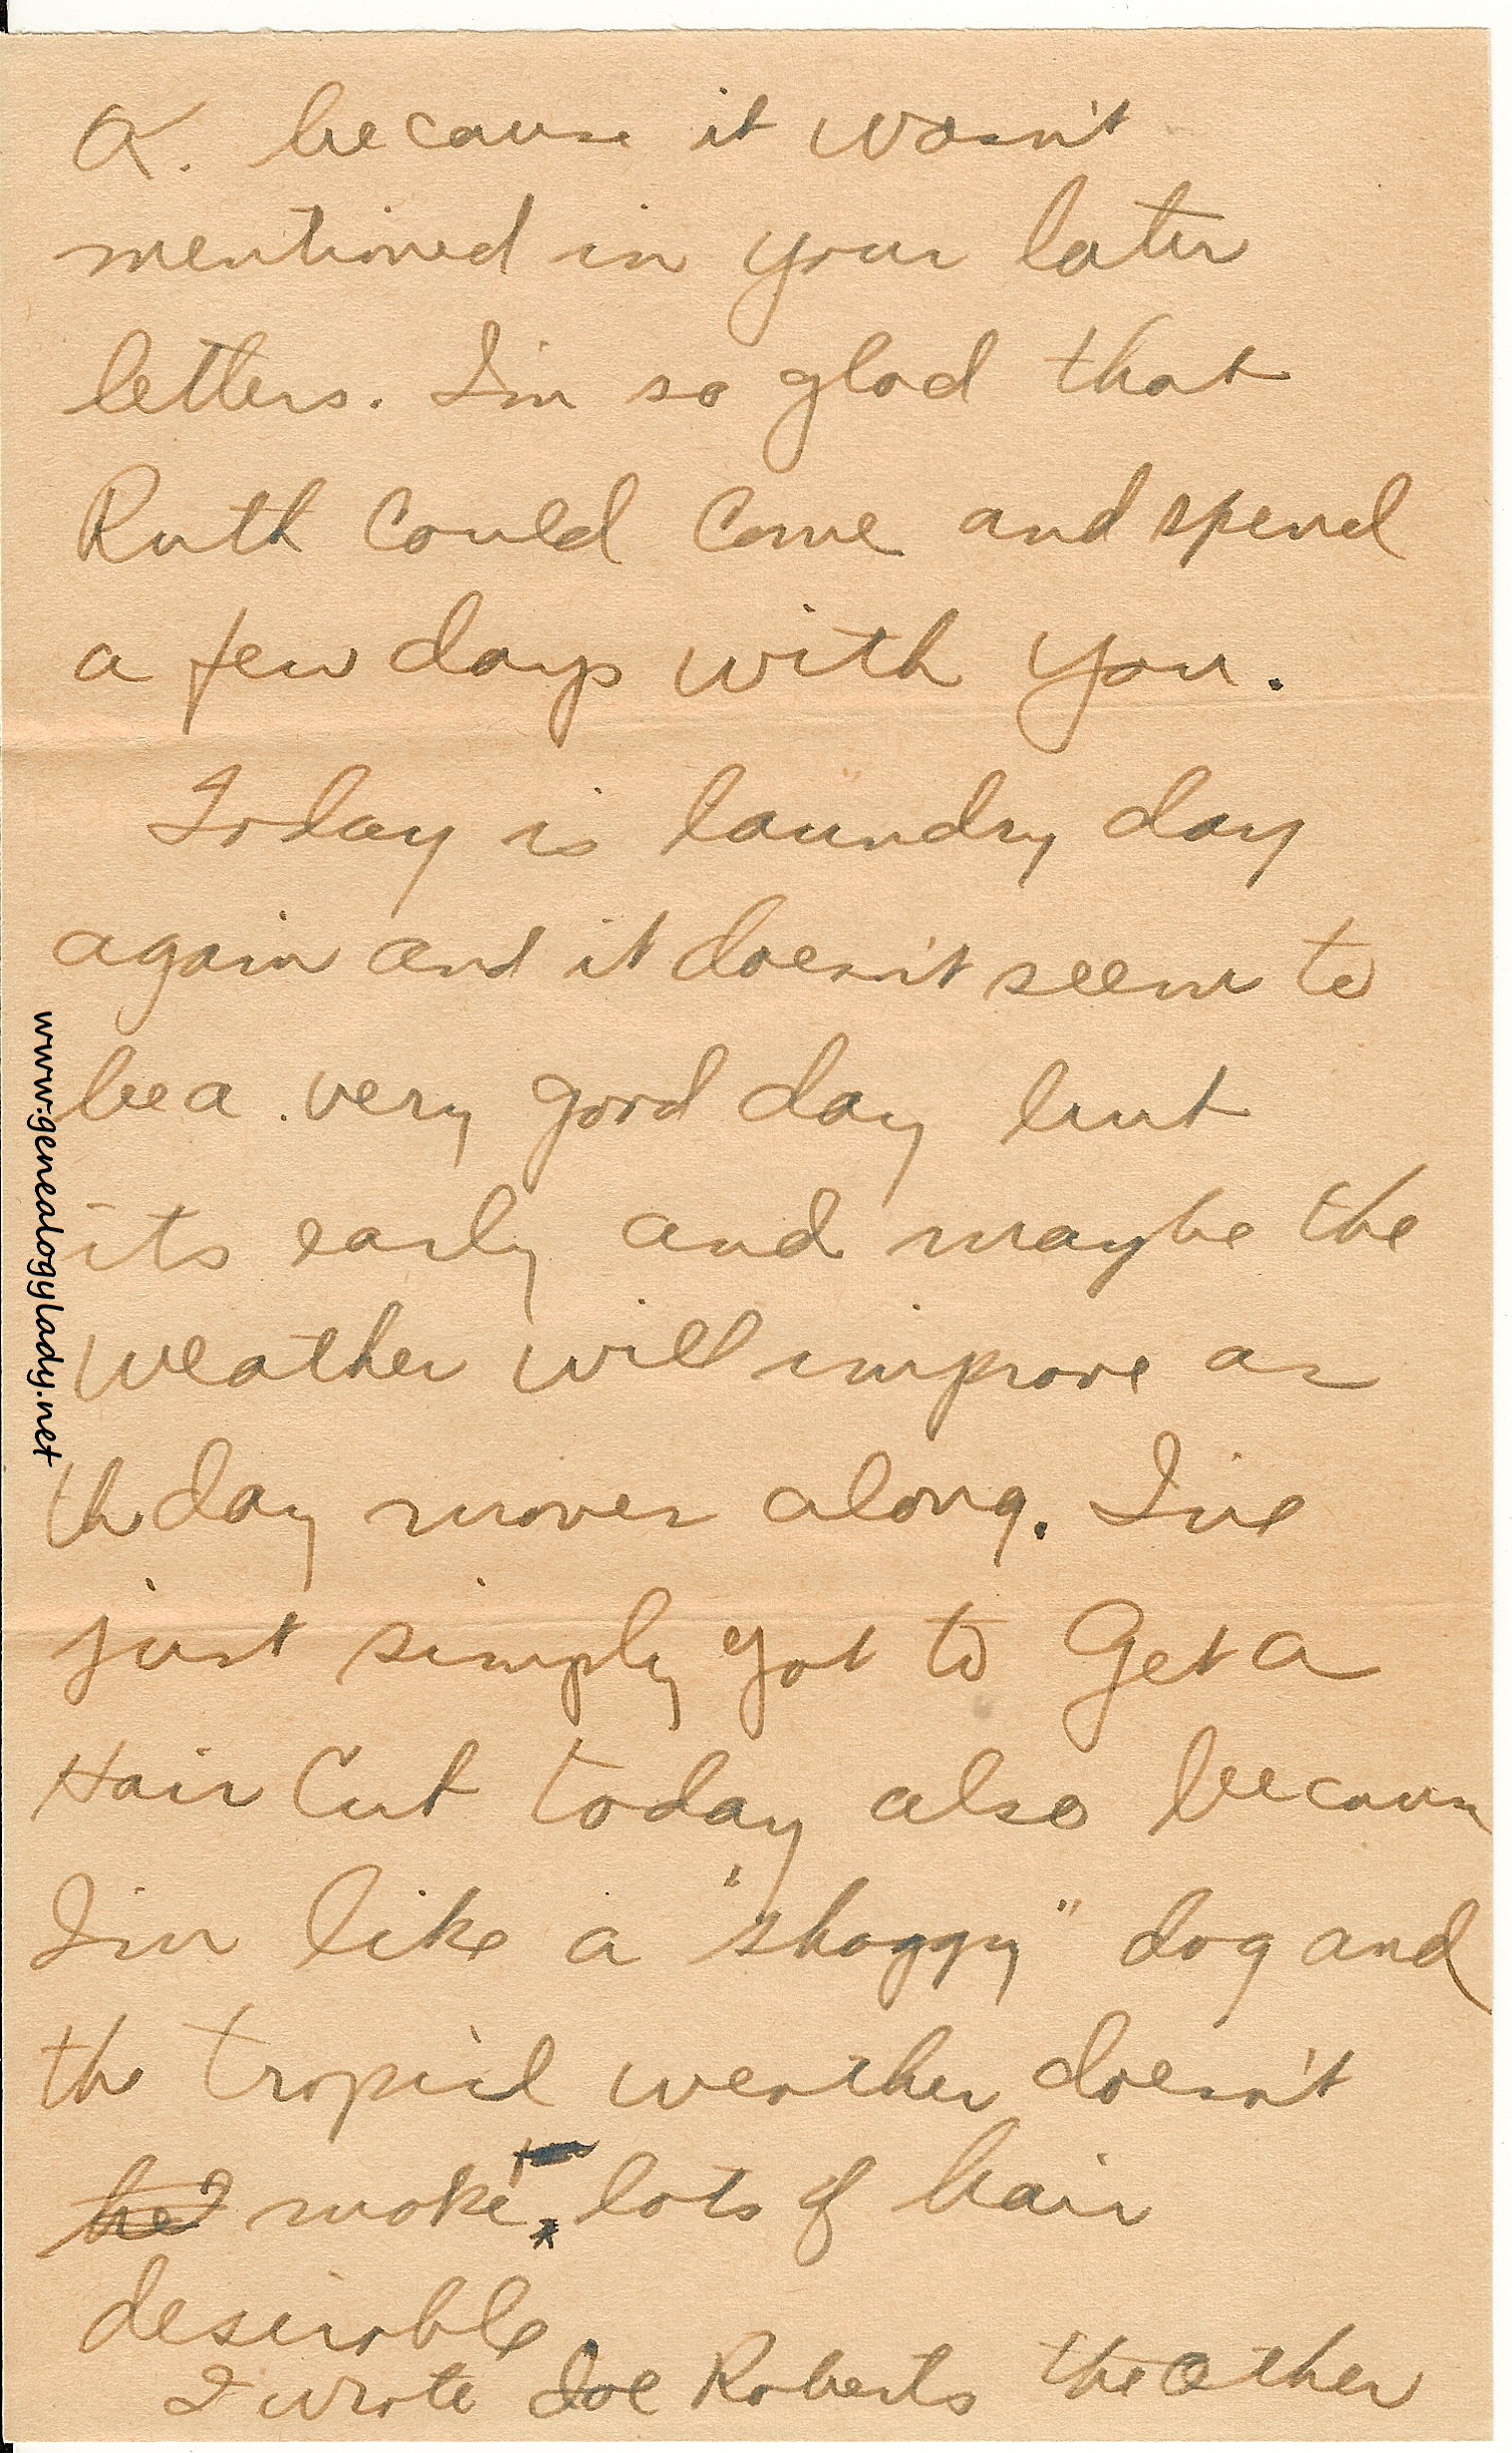 OK. because it wasn't
mentioned in your later
letters. I'm so glad that
Ruth could come and spend
a few days with you.
Today is laundry day
again and it doesn't seem to
be a very good day but
its early and maybe the
weather will improve as
th day moves along. I've
just simply got to Get a
Hair Cut today also because
I'm like a "shaggy" dog and
the tropicl weather doesn't
be make lots of hair
desirable.
I wrote Joe Roberts the other
www.genealogylady.net